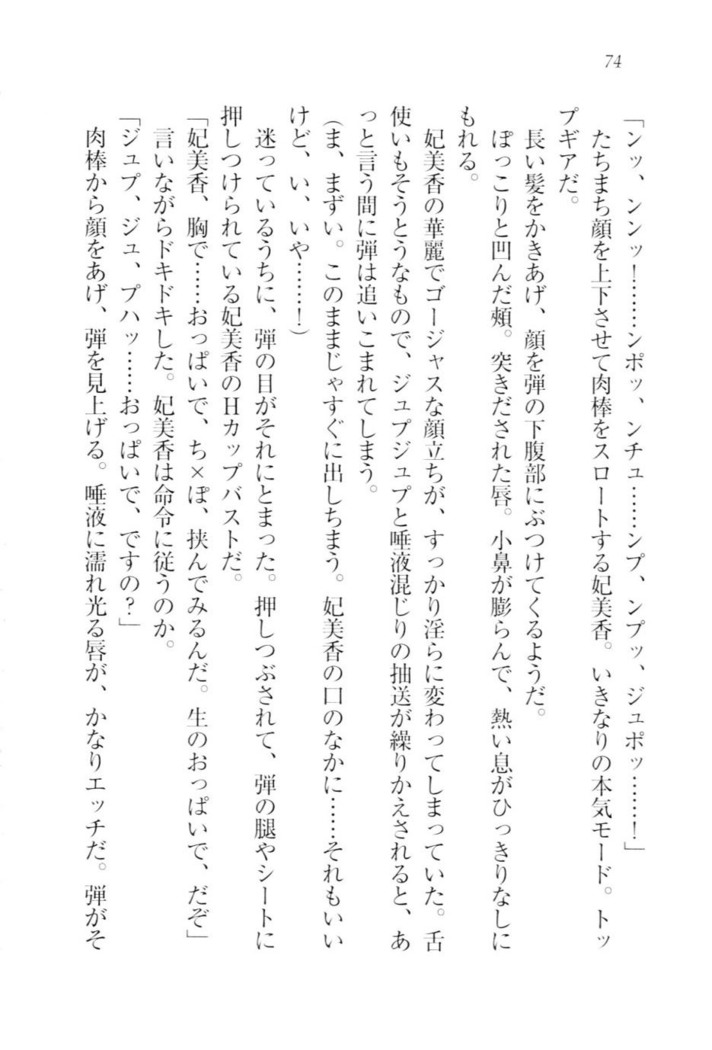 74
「ンッ、ンンッ！……ンポッ、ンチュ……ンプ、ンプッ、ジュポッ……！」
たちまち顔を上下させて肉棒をスロートする妃美香。いきなりの本気モード。トッ
プギアだ。
長い髪をかきあげ、顔を弾の下腹部にぶつけてくるようだ。
ぽっこりと凹んだ頰。突きだされた唇。小鼻が膨らんで、熱い息がひっきりなしに
もれる。
妃美香の華麗でゴージャスな顔立ちが、すっかり淫らに変わってしまっていた。舌
使いもそうとうなもので、ジュプジュプと唾液混じりの抽送が繰りかえされると、あ
っと言う間に弾は追いこまれてしまう。
（ま、まずい。このままじゃすぐに出しちまう。妃美香の口のなかに……それもいい
けど、い、いや……！）
迷っているうちに、弾の目がそれにとまった。押しつぶされて、弾の腿やシートに
押しつけられている妃美香のHカップバストだ。
「妃美香、胸で……おっぱいで、ち×ぽ、挟んでみるんだ。生のおっぱいで、だぞ」
言いながらドキドキした。妃美香は命令に従うのか。
「ジュプ、ジュ、プハッ……おっぱいで、ですの？」
肉棒から顔をあげ、弾を見上げる。唾液に濡れ光る唇が、かなりエッチだ。弾がそ